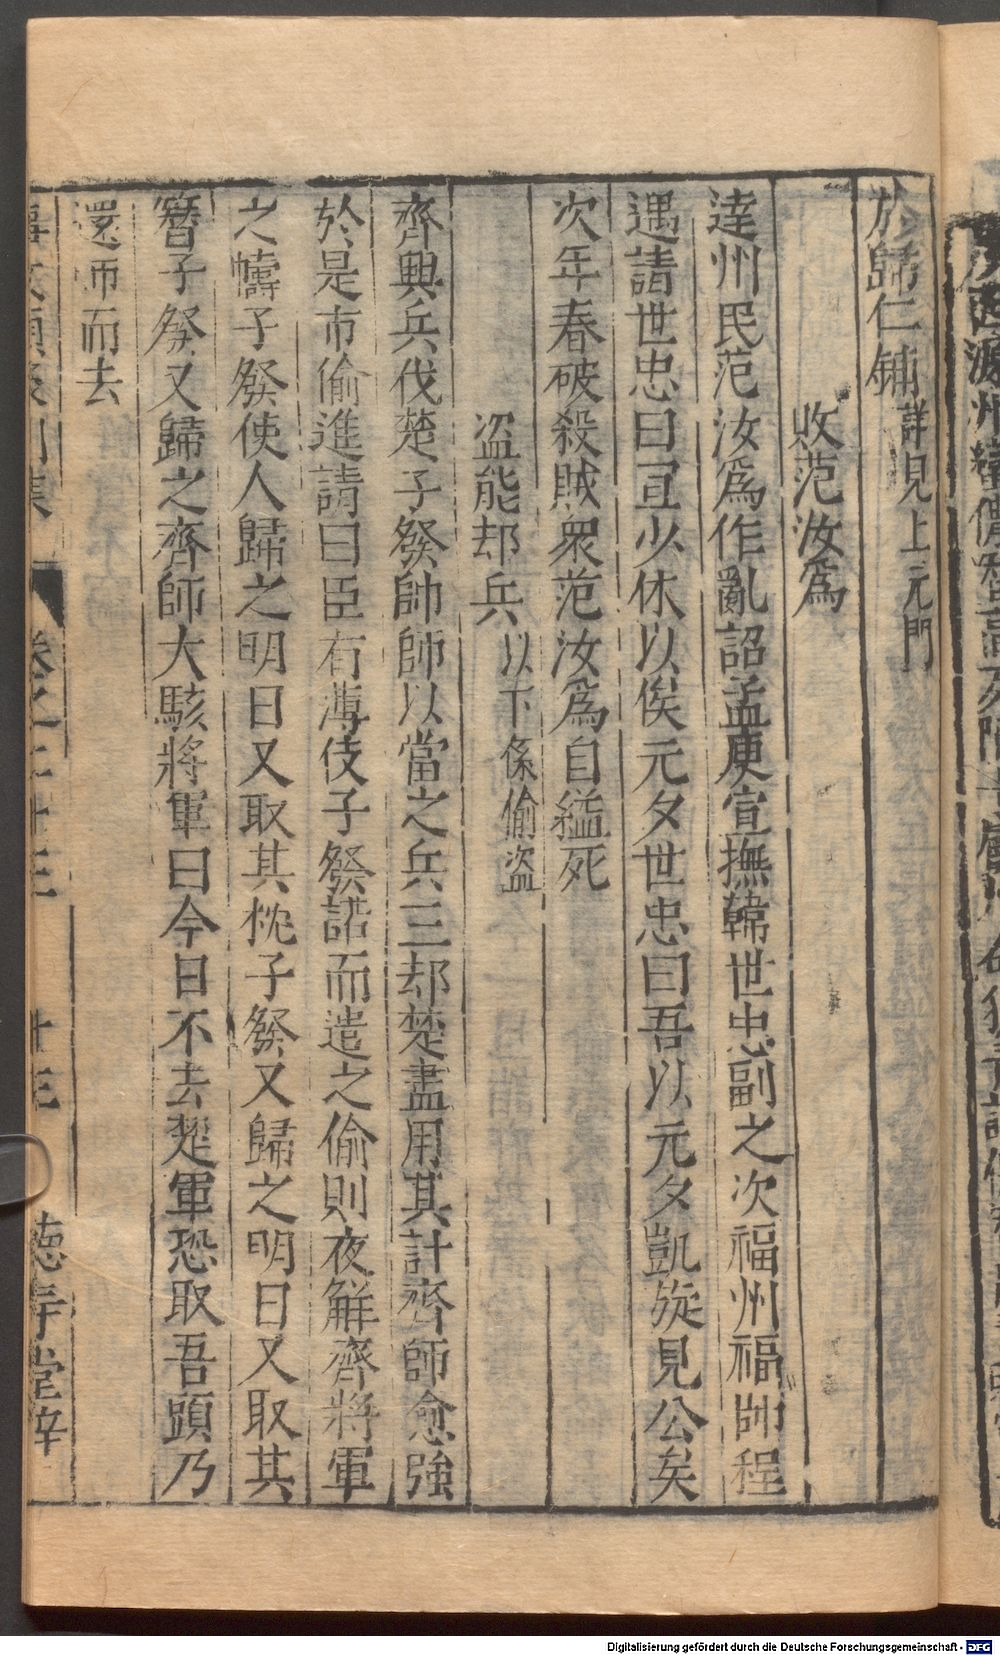 於歸仁鋪詳見上元門
收范汝爲
逹州民范汝爲作亂詔孟庾宣撫韓世忠副之次福州福帥程
遇請世忠曰宜少休以俟元夕世忠曰吾以元夕凱旋見公矣
次年春破殺賊衆范汝爲自縊死
盜能却兵以下係偷盜
齊興兵伐楚子發帥師以當之兵三却楚盡用其計齊師愈強
於是市偷進請曰臣有薄伎子發諾而遣之偷則夜解齊將軍
之幬子發使人歸之明日又取其枕子發又歸之明日又取其
簪子發又歸之齊師大駭將軍曰今日不去楚軍恐取吾頭乃
還師而去
德壽堂梓
Digitalisierung gefördert durch die Deutsche Forschungsgemeinschaft - DFG